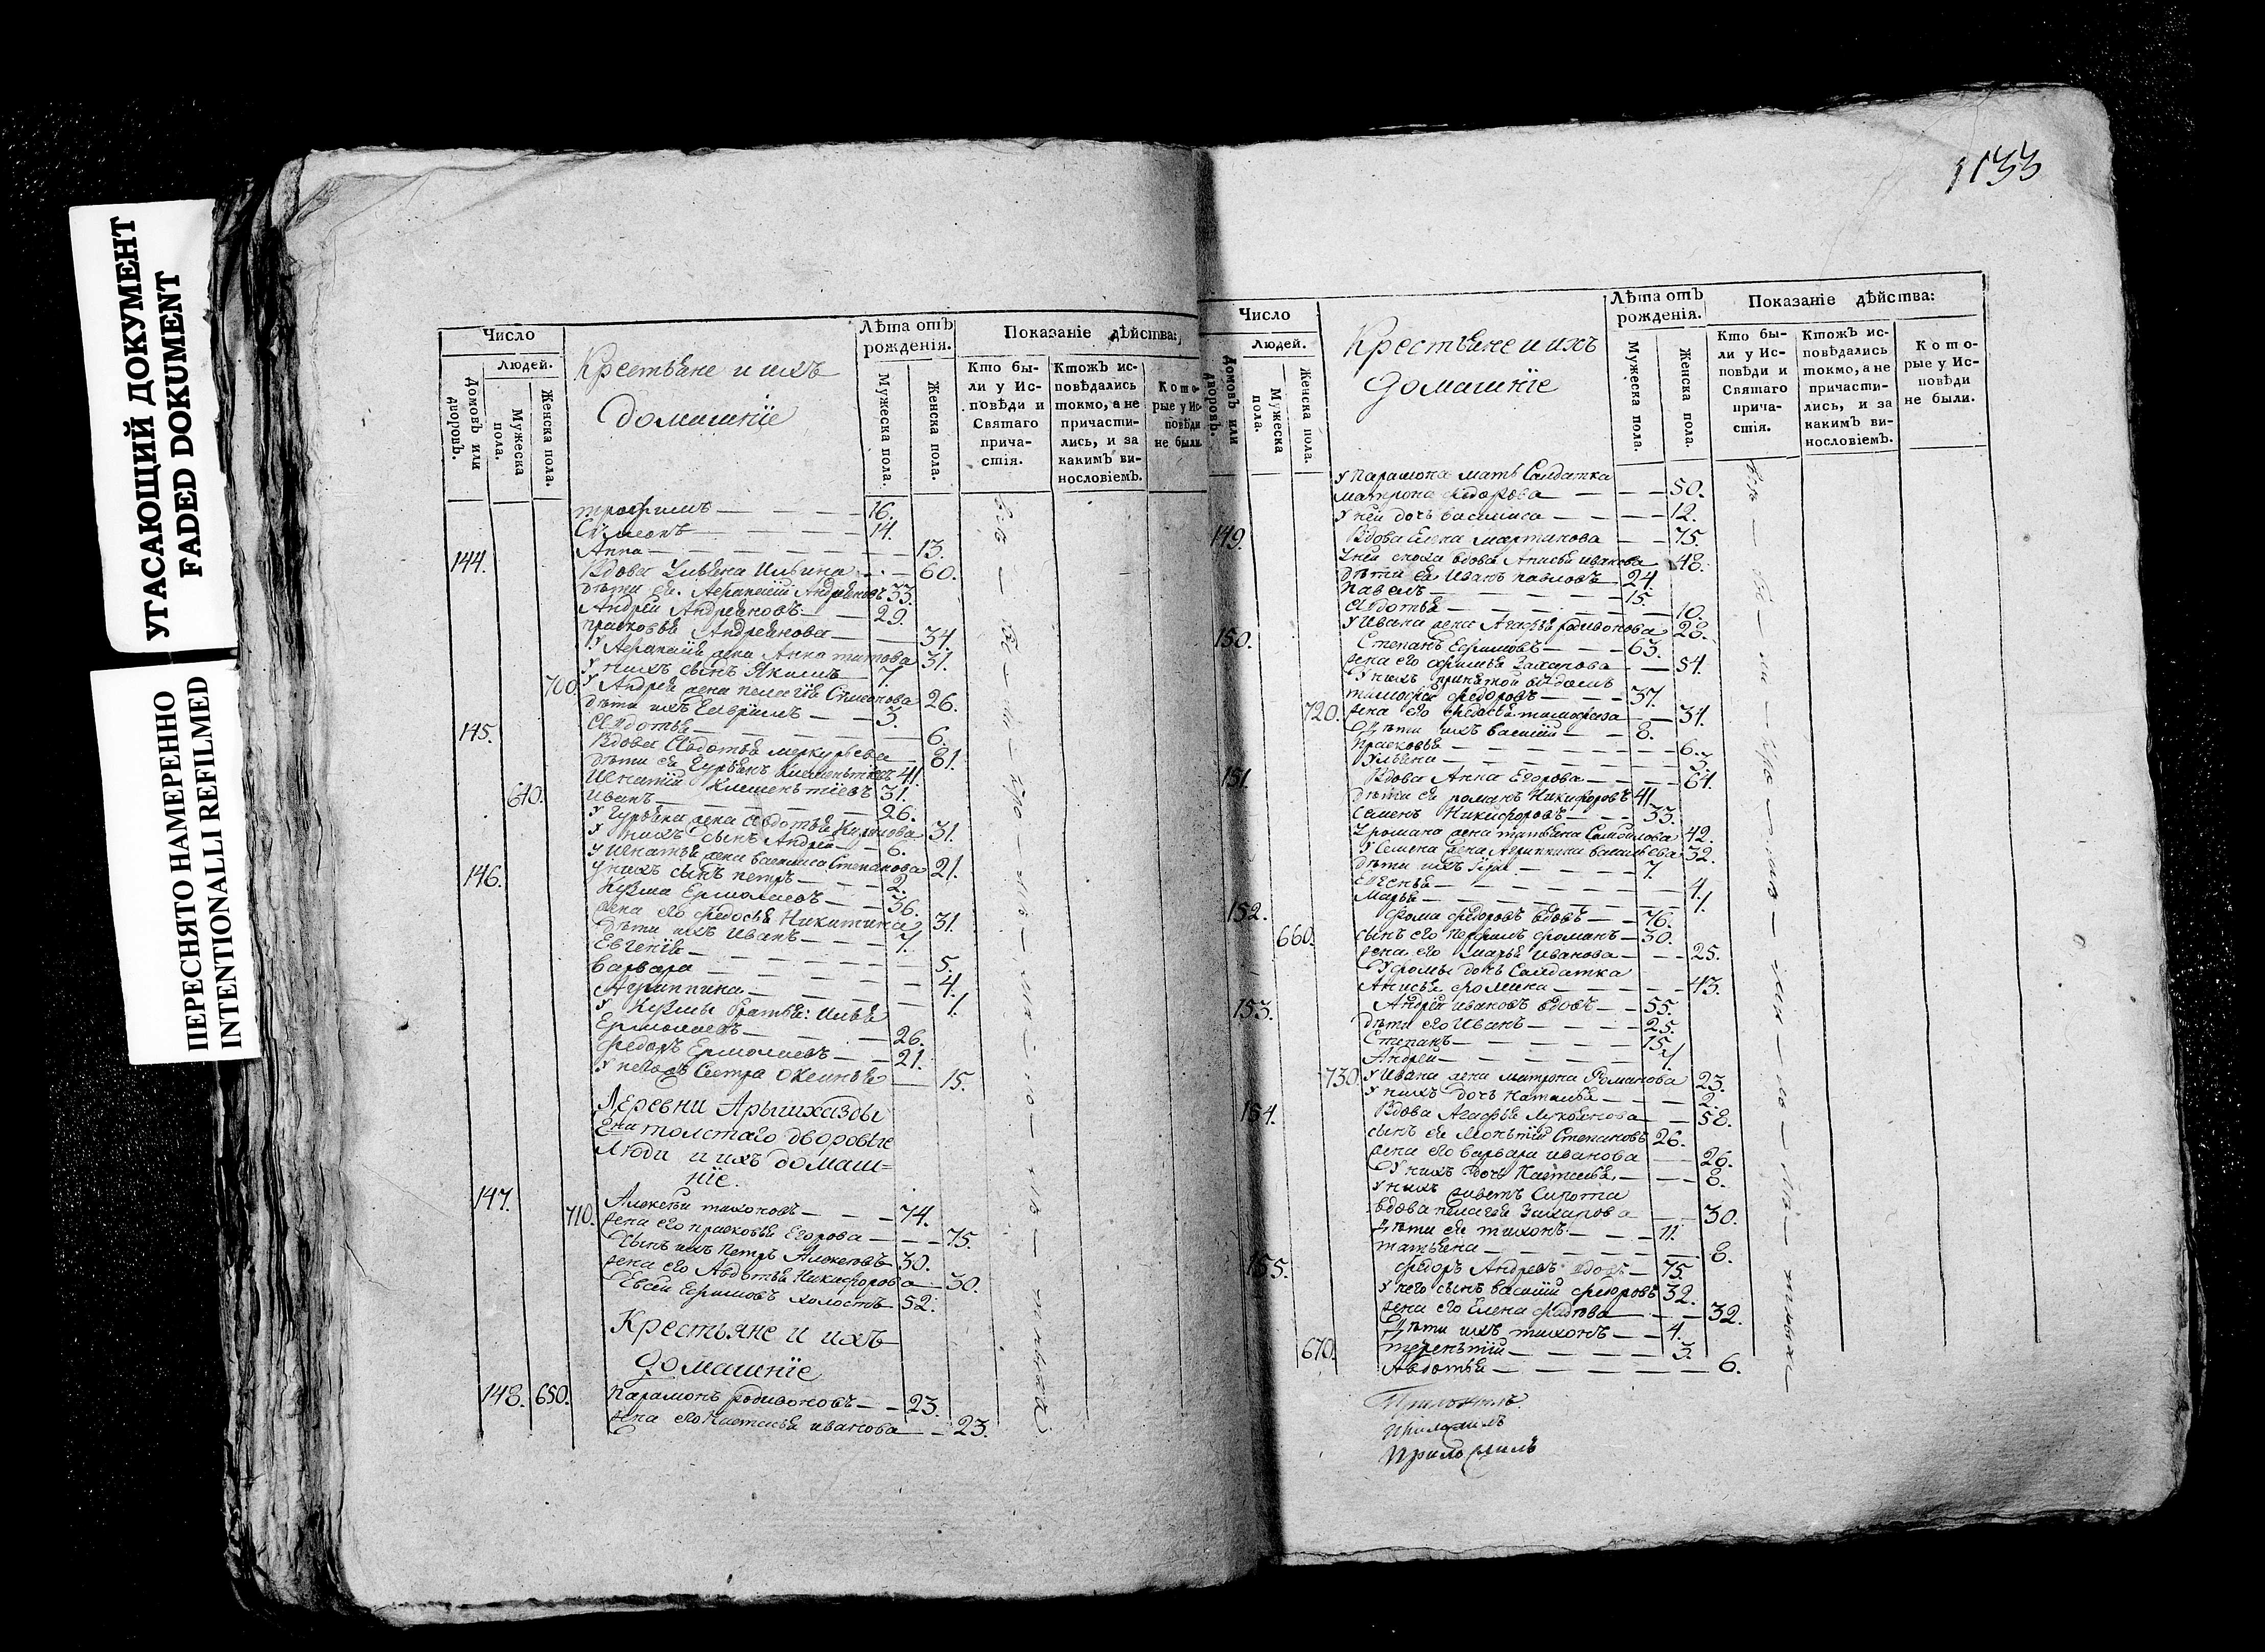 УГАСАЮЩИЙ ДОКУМЕНТ
FADED DOKUMENT
ПЕРЕСНЯТО НАМЕРЕННО
INTENTIONALLI REFILMED
Число
Людей.
Домовъ или дворовъ.
Мужеска пола.
Женска пола.
Крестьяне и ихъ
домашніе
Лѣта отъ рожденія.
Мужеска пола.
Женска пола.
Показаніе дѣйства:
Кто были у Исповѣди и Святаго причастія.
Ктожъ исповѣдались токмо, а не причастились, и за какимъ винословіемъ.
Которые у Исповѣди не были.
трофимъ 16.
Сѵмеонъ 14.
Анна 13.
144. Вдова Ульяна Ильина 60.
дѣти ея. Андреяновъ 33.
Андрей Андреяновъ 29.
прасковья Андреянова 34.
жена Анна титова 31.
у нихъ сынъ Якимъ 7.
700. У Андрея жена пелагія 26.
дѣти ихъ 3.
Авдотья 6.
145. Вдова Авдотья меркурьева 61.
дѣти ея Гурьянъ 41.
Игнатій Климентіевъ 31.
640. Иванъ 26.
У Гурьяна жена Авдотья 31.
У нихъ сынъ Андрей 6.
У Игнатья жена василиса Степанова 21.
У нихъ сынъ петръ 2.
146. Кузма Ермолаевъ 36.
жена его федосья Никитина 31.
дѣти ихъ Иванъ 7.
Евгенія 5.
варвара 4.
Агриппина 1.
У Кузмы братья: Илья
Ермолаевъ 26.
федоръ Ермолаевъ 21.
Сестра 15.
Деревни
толстаго дворовые
люди и ихъ домаш=
ніе.
147. Алексѣй тихоновъ 74.
710. жена его прасковья Егорова 75.
Сынъ ихъ Петръ Алексѣевъ 30.
жена его Авдотья Никифорова 30.
Евсей Ефимовъ холостъ 52.
Крестьяне и ихъ
домашніе
148. 650. Парамонъ родионовъ 23.
жена его Настасья иванова 23.
1133
Число
Людей.
Домовъ или дворовъ.
Мужеска пола.
Женска пола.
Крестьяне и ихъ
домашніе
Лѣта отъ рожденія.
Мужеска пола.
Женска пола.
Показаніе дѣйства:
Кто были у Исповѣди и Святаго причастія.
Ктожъ исповѣдались токмо, а не причастились, и за какимъ винословіемъ.
Которые у Исповѣди не были.
У Парамона мать Салдатка
матрона федорова 50.
У ней дочь василиса 12.
149. Вдова Елена мартинова 75.
У ней сноха вдова Анисья иванова 48.
дѣти ея Иванъ павловъ 24.
Павелъ 15.
Авдотья 10.
У Ивана жена Агафья родионова 28.
150. Степанъ Ефимовъ 63.
жена его Захарова 54.
У нихъ
тимофей федоровъ 37.
720. жена его 34.
Дѣти ихъ василій 8.
Прасковья 6.
Ульяна 3.
151. Вдова Анна Егорова 64.
дѣти ея романъ Никифоровъ 41.
Семенъ Никифоровъ 33.
У романа жена татьяна Самойлова 42.
У Семена жена Агриппина васильева 32.
дѣти ихъ 7.
Евгенья 4.
Марья 1.
152. фома федоровъ вдовъ 76.
660. сынъ его 30.
жена его Марья Иванова 25.
У фомы дочь Салдатка
Анисья фомина 43.
153. Андрей ивановъ вдовъ 55.
дѣти его Иванъ 25.
Степанъ 15.
Андрей 7.
730. У Ивана жена матрона Романова 23.
У нихъ дочь Наталья 2.
154. Вдова Агафья Лукьянова 58.
сынъ ея Степановъ 26.
жена его варвара иванова 26.
У нихъ дочь Настасья 8.
У нихъ живетъ Сирота
вдова пелагея Захарова 30.
Дѣти ея тихонъ 11.
татьяна 8.
155. федоръ Андреевъ вдовъ 75.
У него сынъ василій федоровъ 32.
жена его Елена 32.
Дѣти ихъ тихонъ 4.
670. терентій 3.
Авдотья 6.
Приложилъ
Приложилъ
Приложилъ